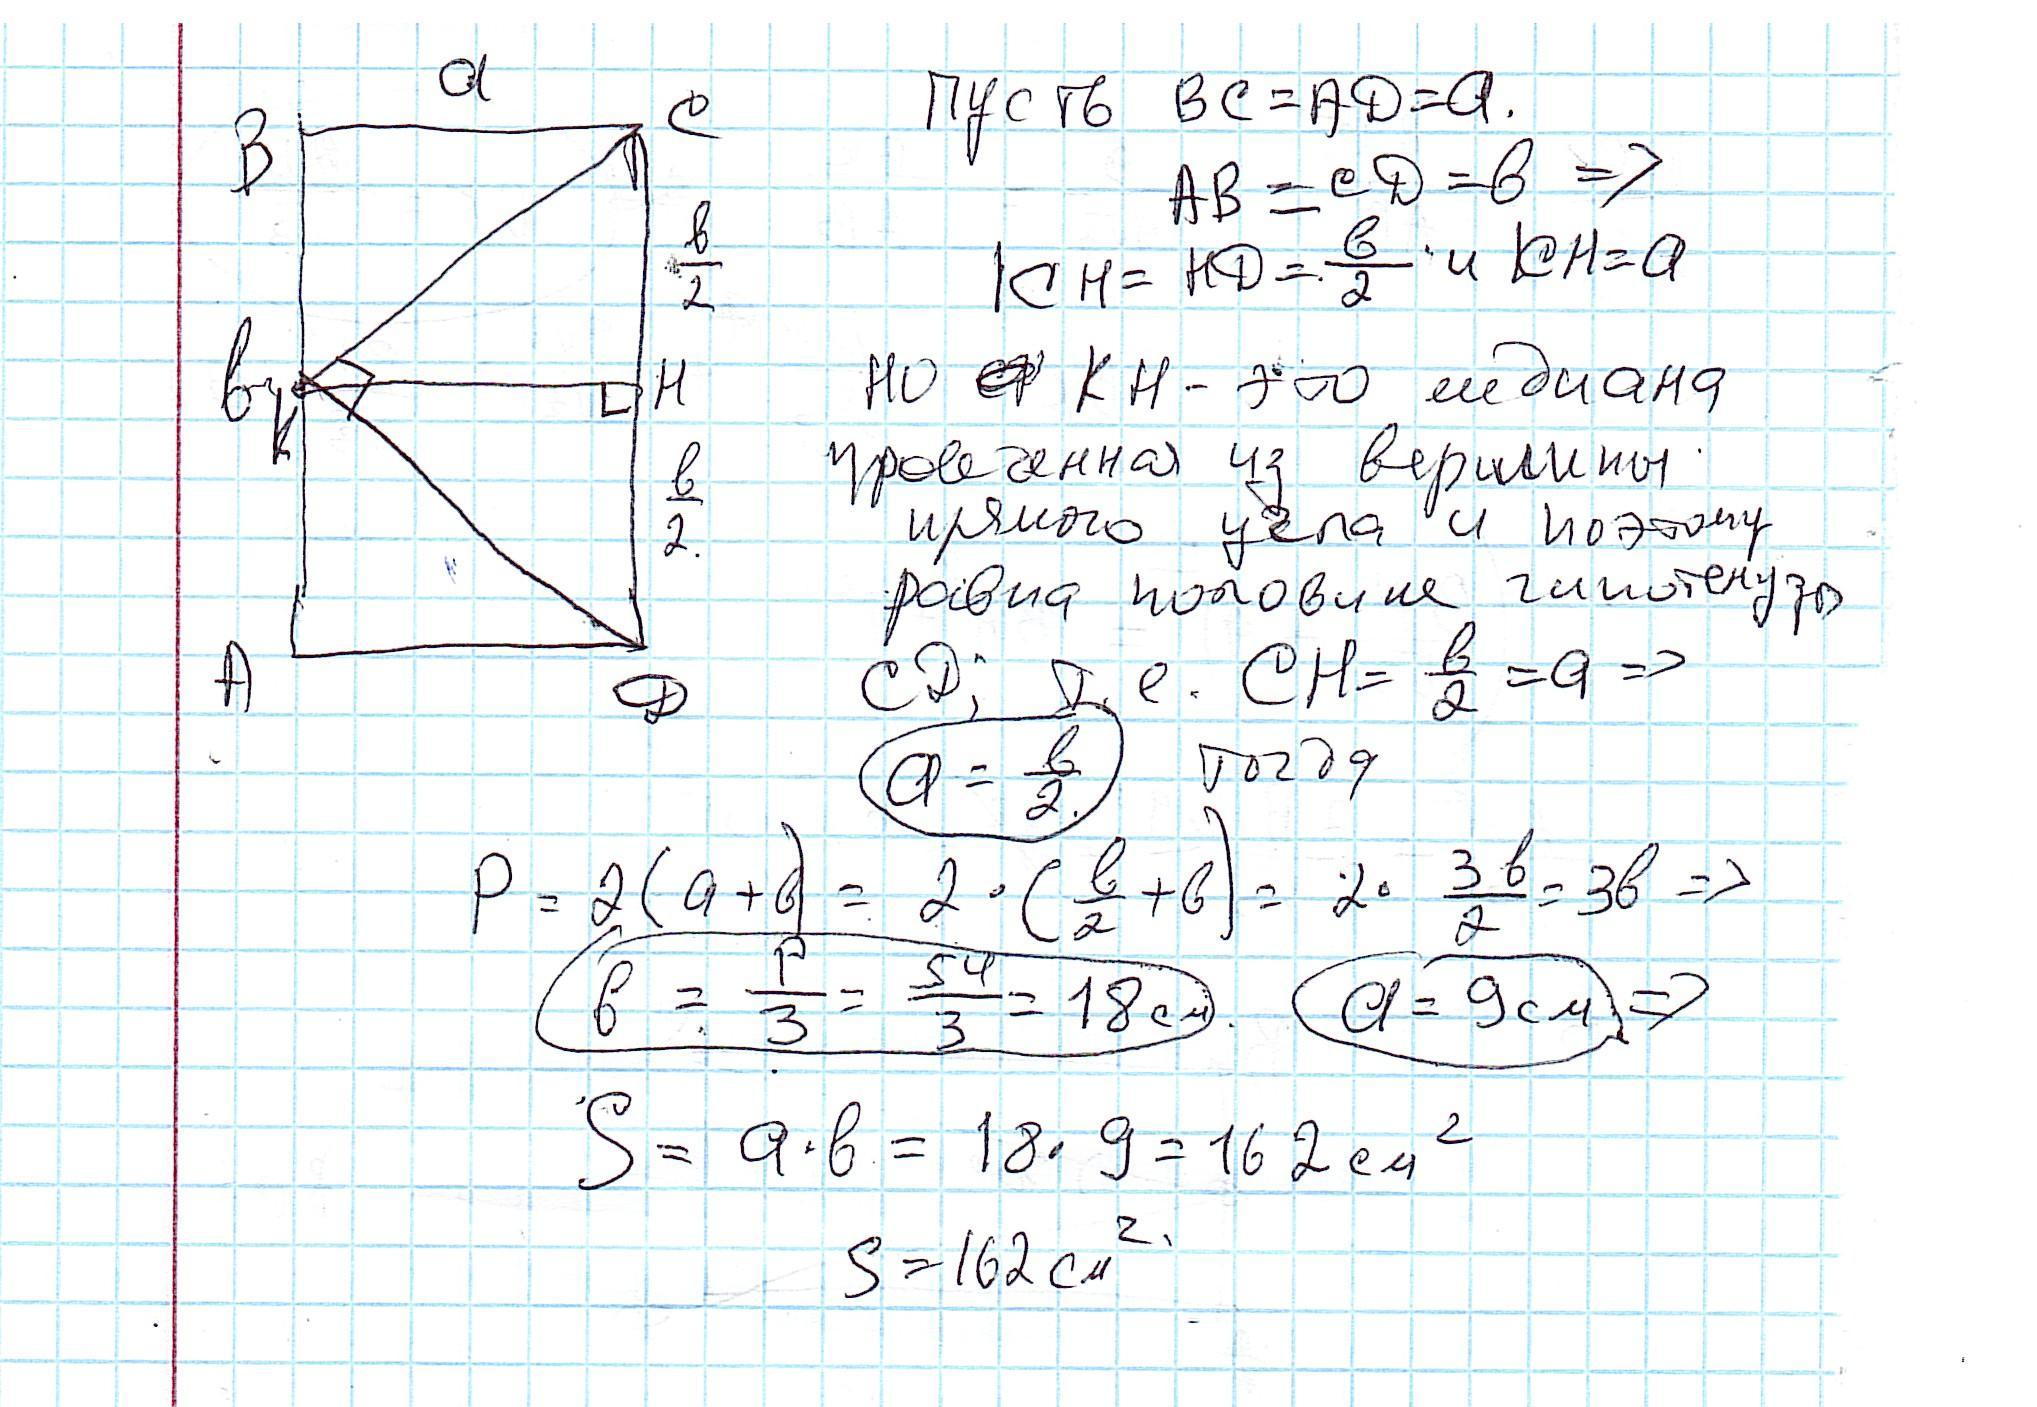 a
B
C
b/2
b
K
H
b/2.
A
D
Пусть BC=AD=a.
AB=CD=b =>
KCH=HD=b/2 и KH=a
но KH - это медиана
проведенная из вершины
прямого угла и поэтому
равна половине гипотенузы
CD; т.е. CH=b/2=a =>
a=b/2. тогда
P=2(a+b)=2·(b/2+b)=2·3b/2=3b =>
b=P/3=54/3=18см. a=9см =>
S=a·b=18·9=162см²
S=162см².